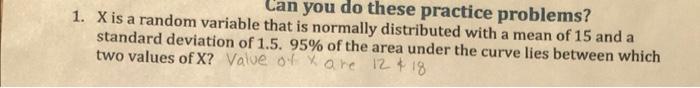 Can you do these practice problems?
1. X is a random variable that is normally distributed with a mean of 15 and a
standard deviation of 1.5. 95% of the area under the curve lies between which
two values of X? Value of X are 12 & 18